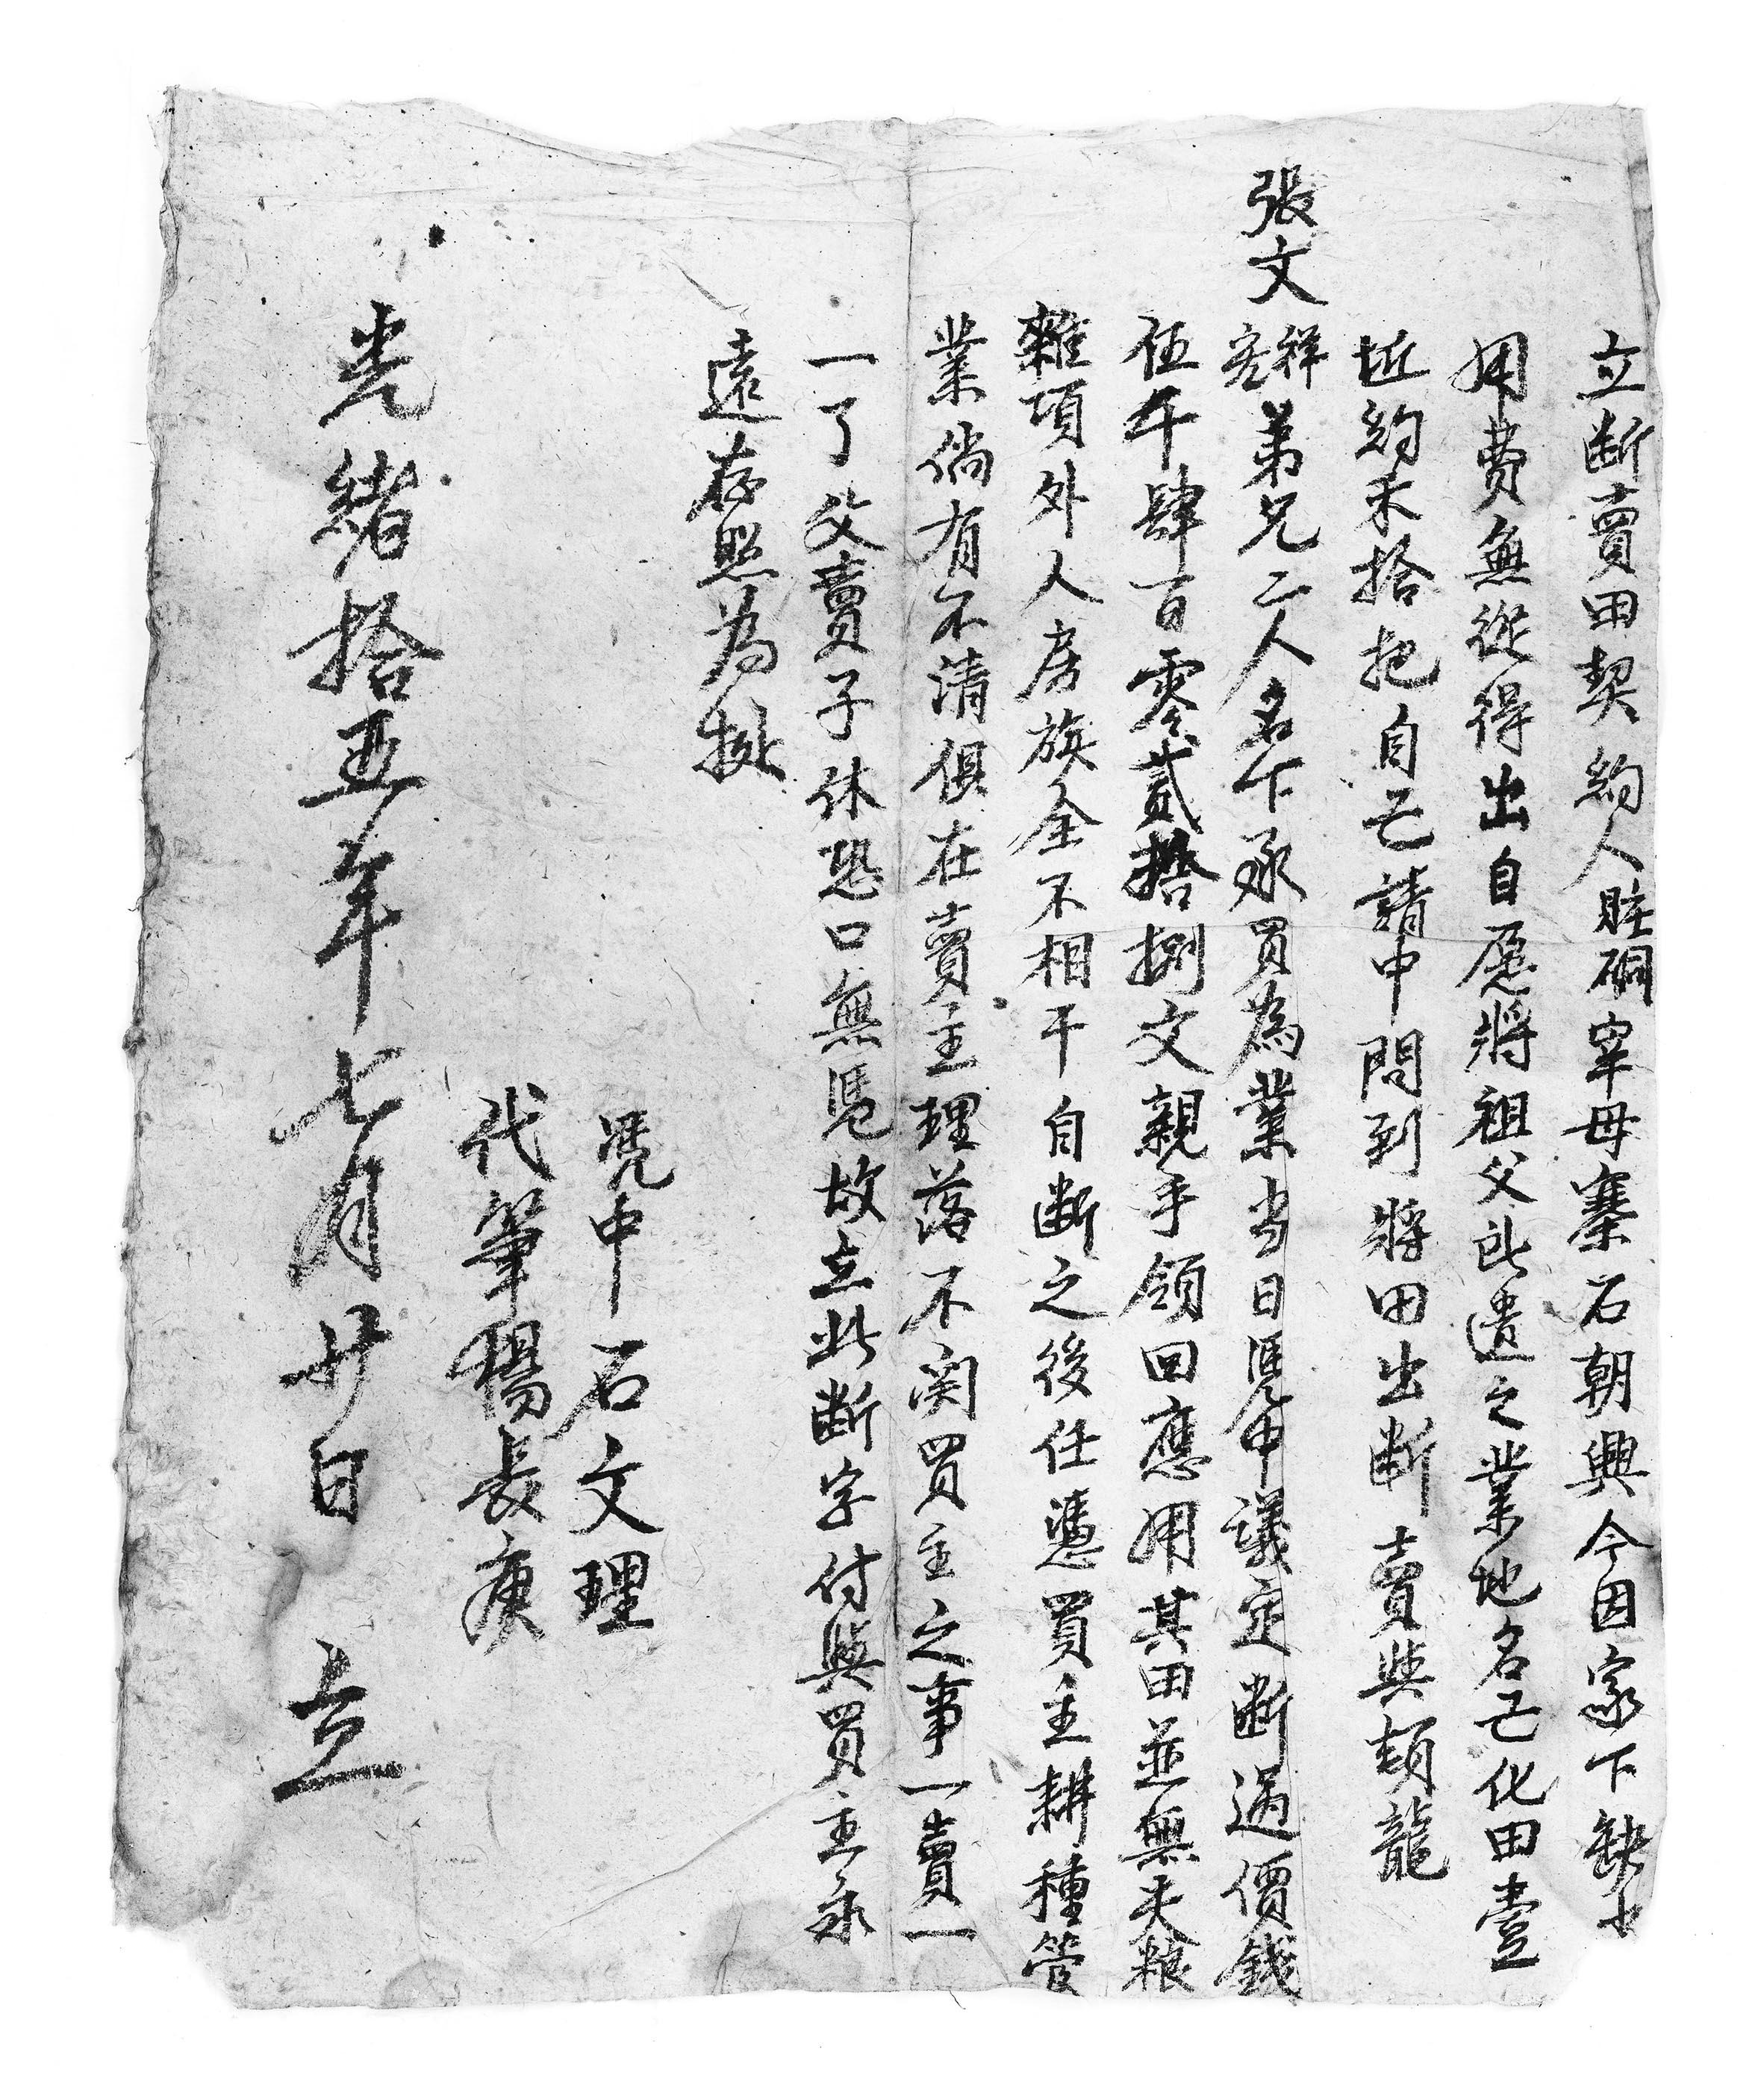 立断賣田契約人䞴硐宰母寨石朝興今因家下缺少
用費無從得出自愿將祖父所遺之業地名亡化田壹
坵約禾拾把自己請中問到將田出断賣與頓龍
張文祥宏弟兄二人名下承買為業当日凴中議定断過價錢
伍千肆百零貳拾捌文親手領回應用其田並無夫粮
雜項外人房族全不相干自断之後任憑買主耕種管
業倘有不清俱在賣主理落不関買主之事一賣一
一了父賣子休恐口無凴故立此断字付與買主永
遠存照為拠
凴中石文理
代筆楊長庚
光緒拾五年七月廿日 立